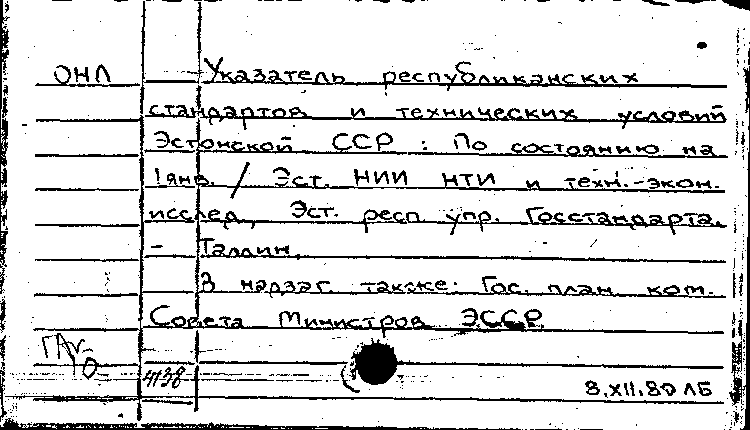 ОНЛ Указатель республиканских
стандартов и технических условий
Эстонской ССР : По состоянию на
1 янв. / Эст. НИИ НТИ и техн.-экон.
исслед., Эст. респ. упр. Госстандарта.
- Таллин.
В надзаг. также: Гос. план. ком.
Совета Министров ЭССР
4138
8.XII.80 ЛБ